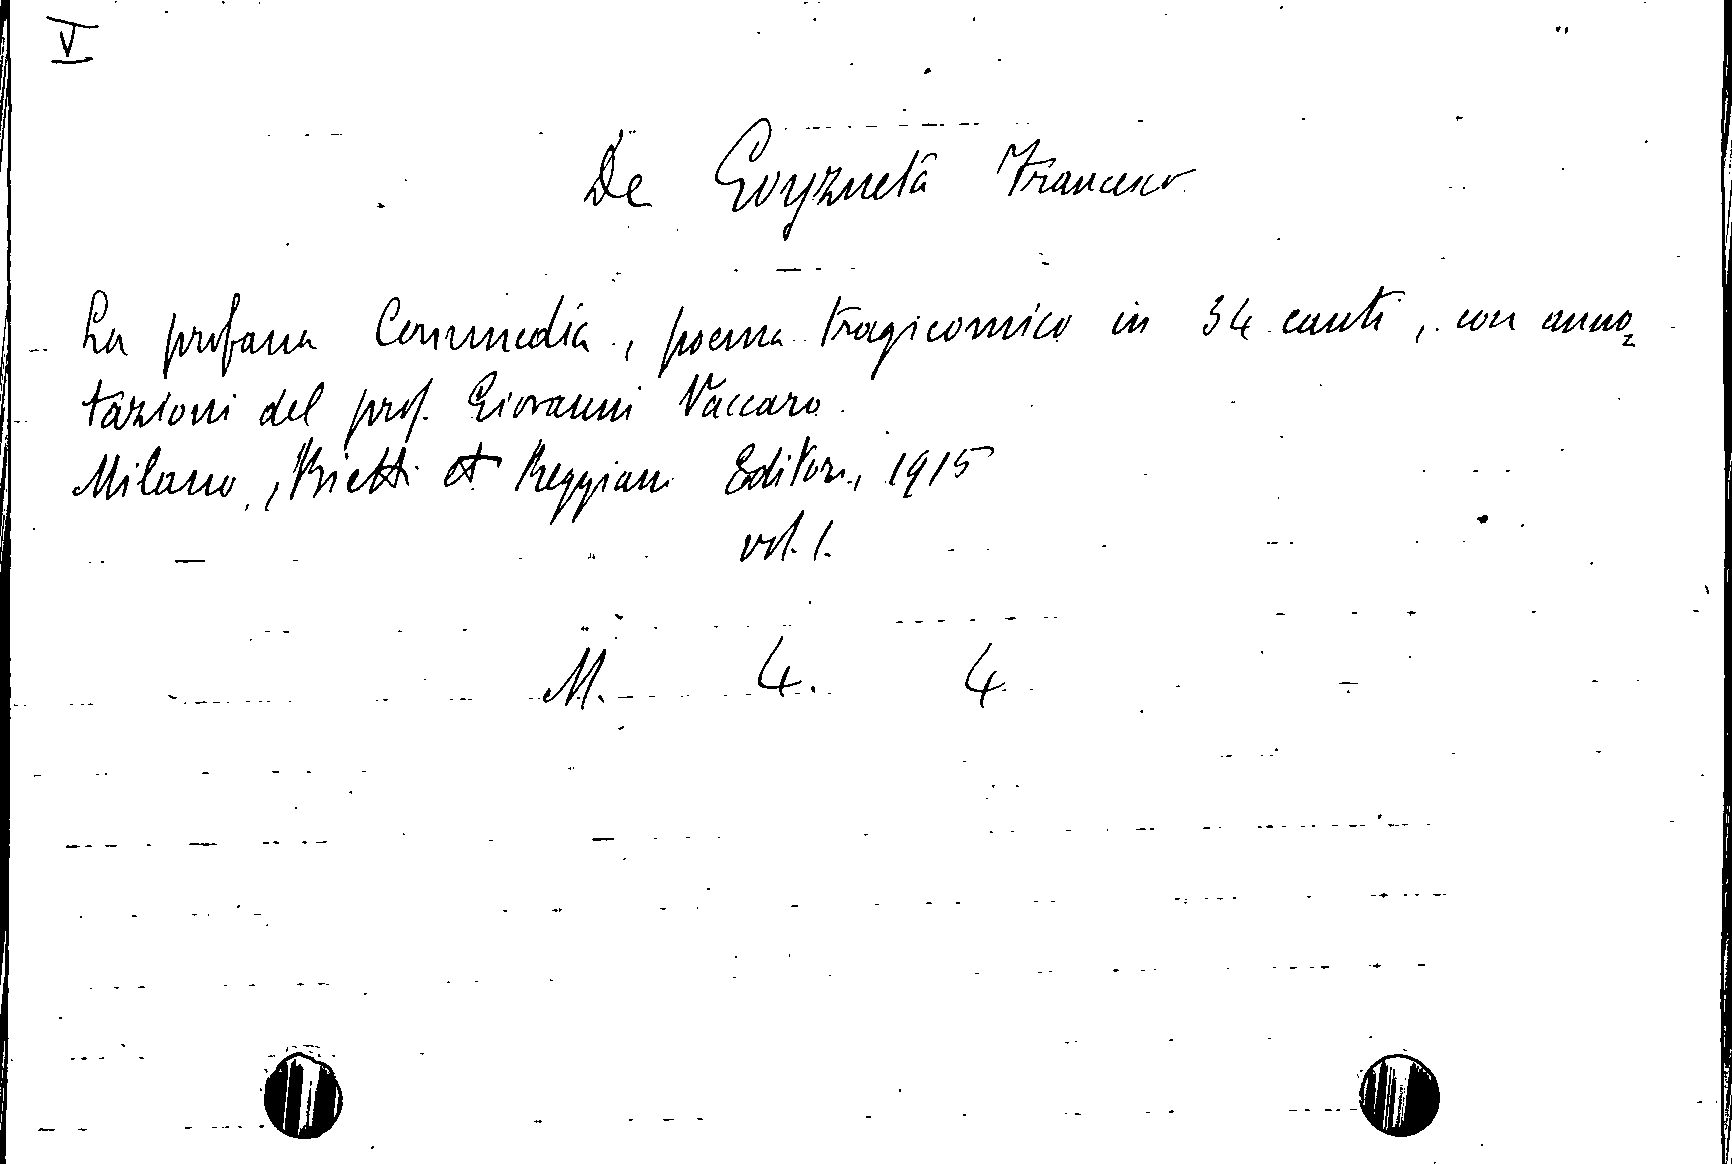 V
De Goyzueta Francesco
La profana Commedia, poema tragicomico in 34 canti, con anno=
tazioni del prof. Giovanni Vaccaro
Milano, Bietti et Reggiani Editori, 1915
vol. 1.
M. 4. 4